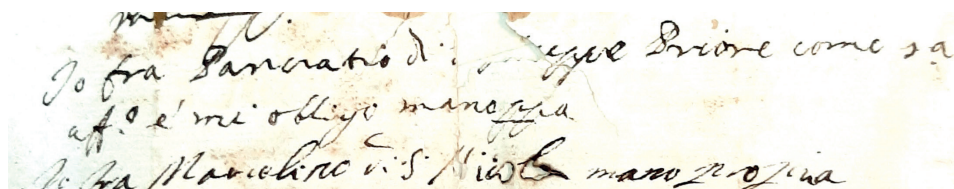 Io fra Pancratio di Gioseppe Priore come sa
aff.º é mi obligo manoppia
Io fra Marcelino di S. Nicolo mano propria